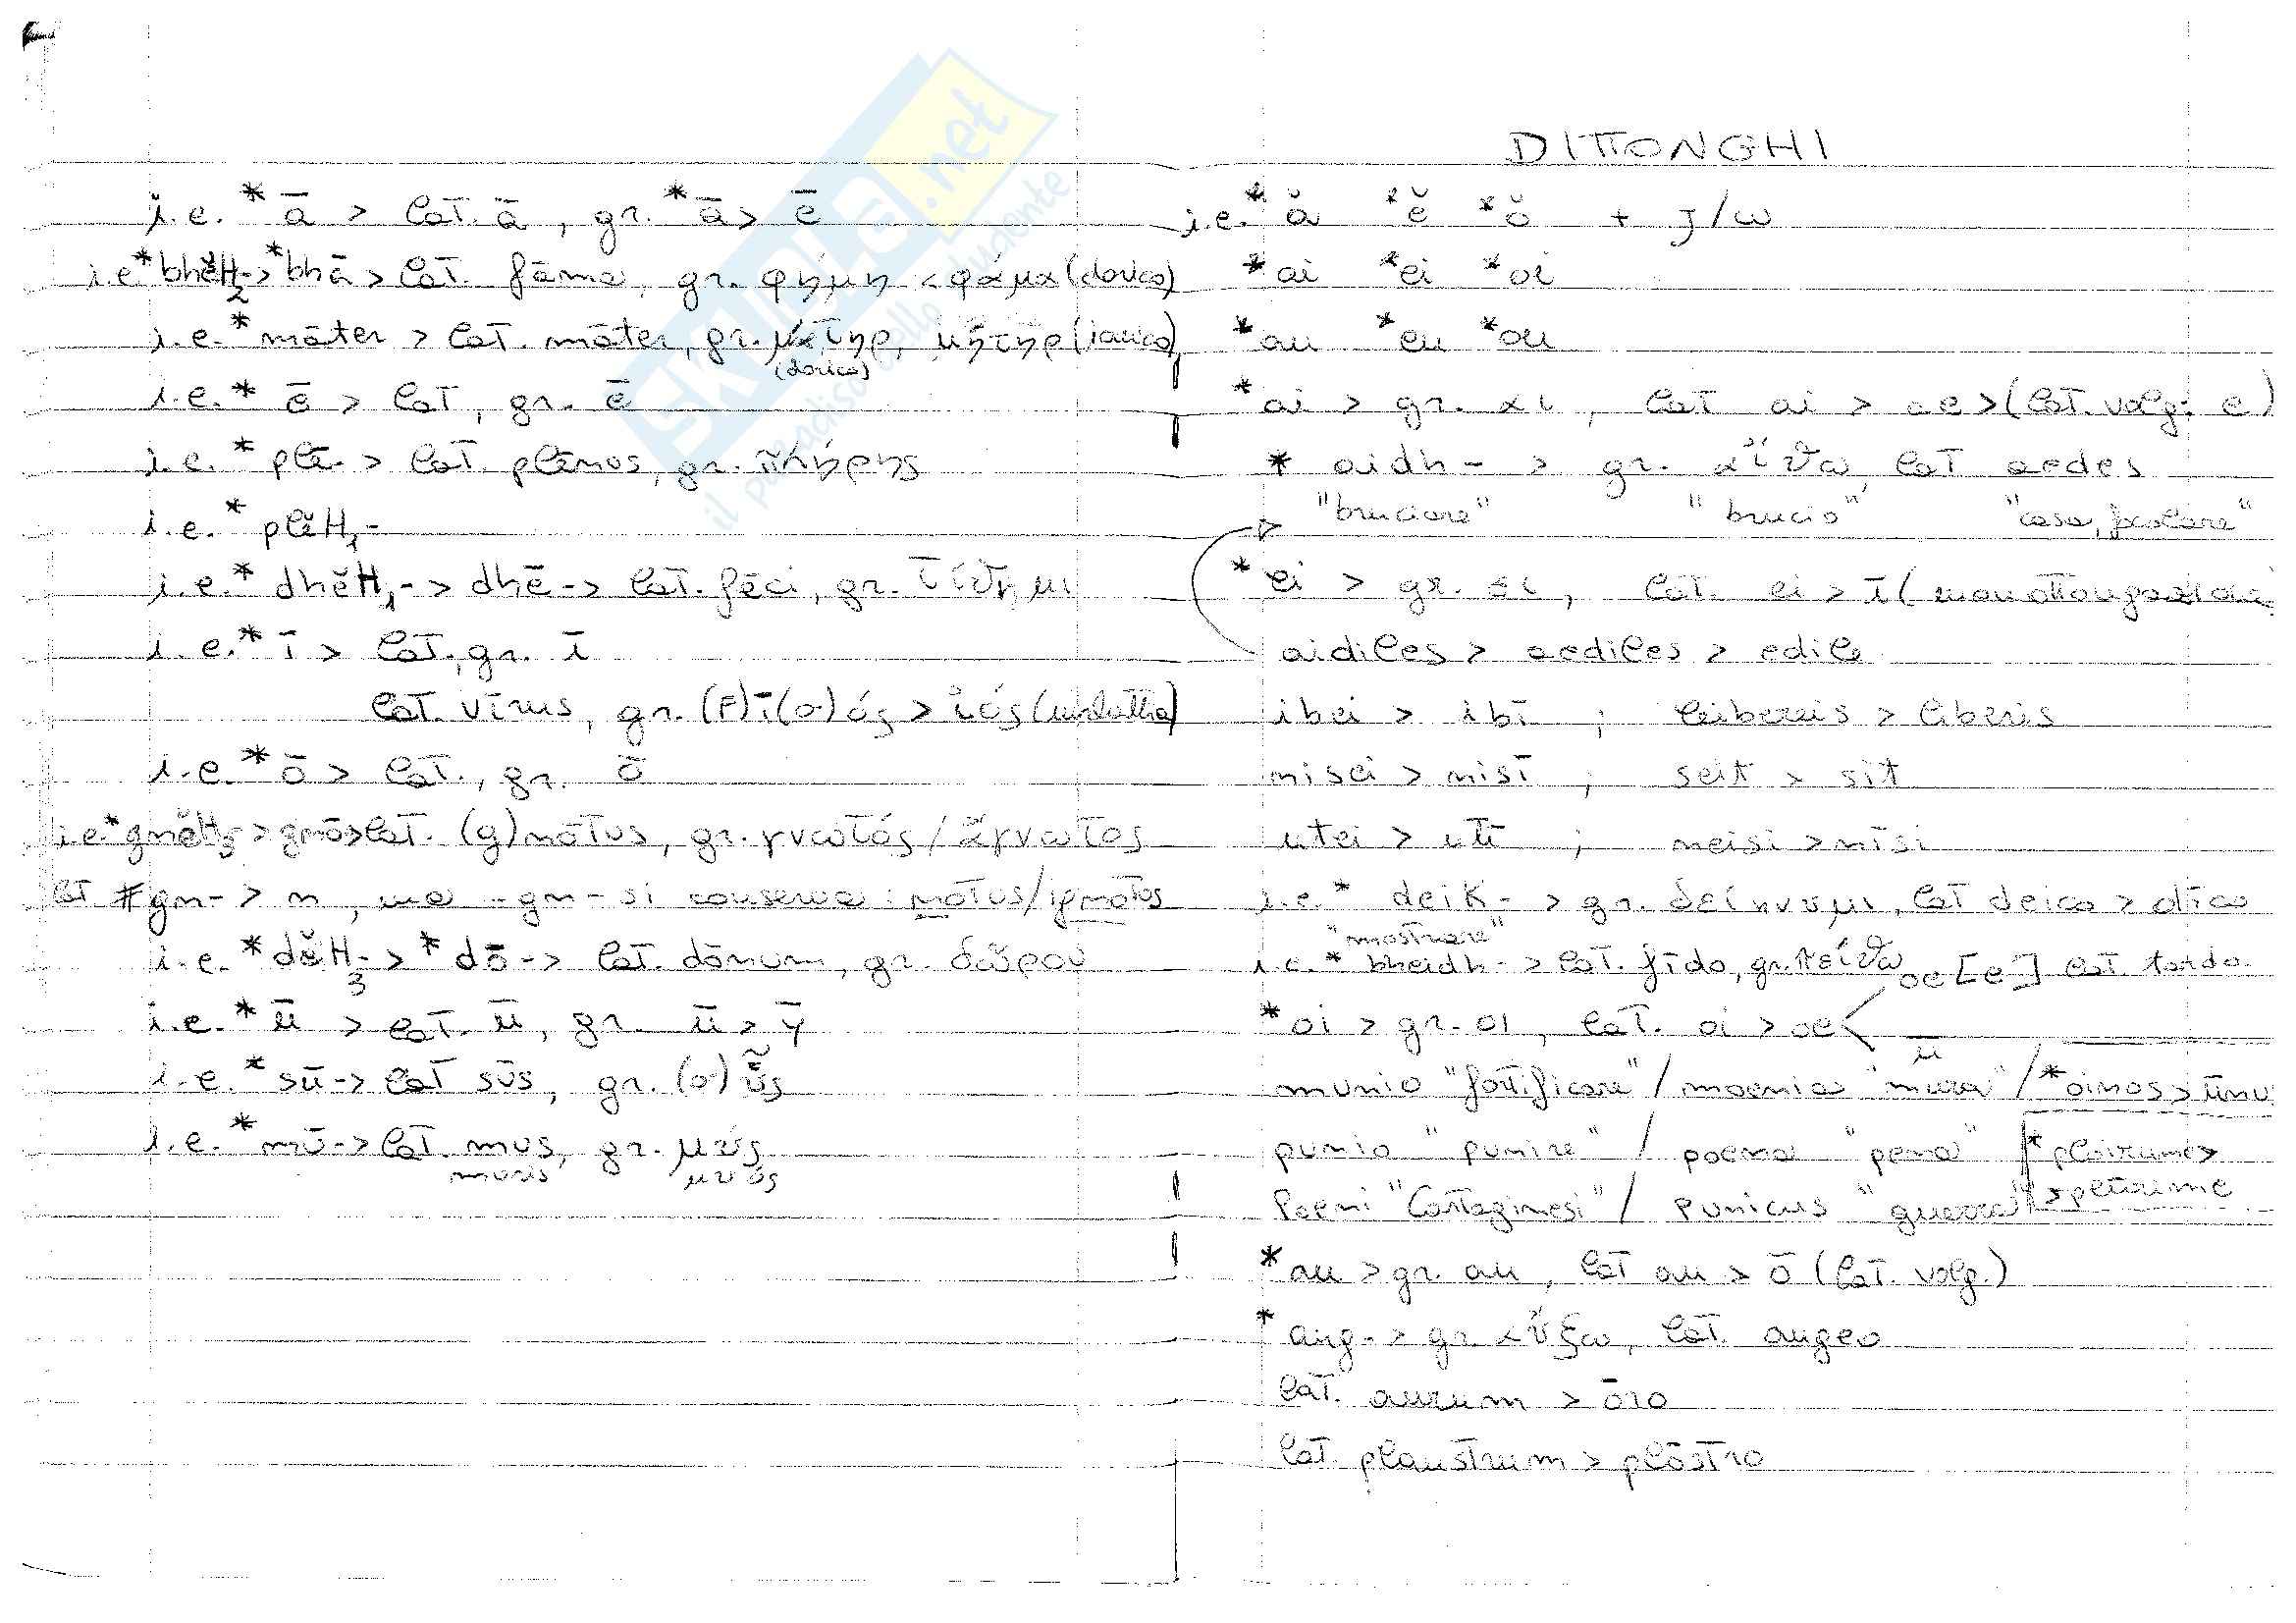 i.e. *ā > lat. ā, gr. *ā > ē
i.e. *bhĕH₂- > *bhā > lat. fāma, gr. φήμη < φάμα (dorico)
i.e. *māter > lat. māter, gr. μάτηρ, μήτηρ (ionico)
(dorico)
i.e. *ē > lat, gr. ē
i.e. *plē- > lat. plēnus, gr. πλήρης
i.e. *plĕH₁-
i.e. *dhĕH₁- > dhē- > lat. fēci, gr. τίθημι
i.e. *ī > lat., gr. ī
lat. vīrus, gr. (F)ī(σ)ός > ἰός
i.e. *ō > lat., gr. ō
i.e. *gnĕH₃ > gnō > lat. (g)nōtus, gr. γνωτός / ἄγνωτος
lat #gn- > n, ma -gn- si conserva: nōtus/ignōtus
i.e. *dĕH₃- > *dō- > lat. dōnum, gr. δῶρον
i.e. *ū > lat. ū, gr. ū > ȳ
i.e. *sū- > lat sūs, gr. (σ)ῦς
i.e. *mū- > lat. mus, gr. μύς
muris μυός
DITTONGHI
i.e. *ă *ĕ *ŏ + J/w
*ai *ei *oi
*au *eu *ou
*ai > gr. αι, lat ai > ae > (lat. volg. e)
*aidh- > gr. αἴθω, lat aedes
"bruciare" "brucio" "casa, focolare"
*ei > gr. ει, lat. ei > ī (monottongazione
aidiles > aediles > edile
ibei > ibī ; leibereis > liberis
nisei > nisī ; seit > sit
utei > utī ; neisi > nīsi
i.e. *deik- > gr. δείκνυμι, lat deico > dīco
"mostrare"
i.e. *bheidh- > lat. fīdo, gr. πείθω
oe [e] lat. tardo
*oi > gr. oι, lat. oi > oe <
ū
munio "fortificare" / moenia "mura" / *oinos > ūnu
punio "punire" / poena "pena" *ploirume >
Poeni "Cartaginesi" / punicus "guerra" > plūrime
*au > gr. au, lat au > ō (lat. volg.)
*aug- > gr. αὔξω, lat. augeo
lat. aurum > ōro
lat. plaustrum > plōstro
SKUOLA.net
il paradiso dello studente